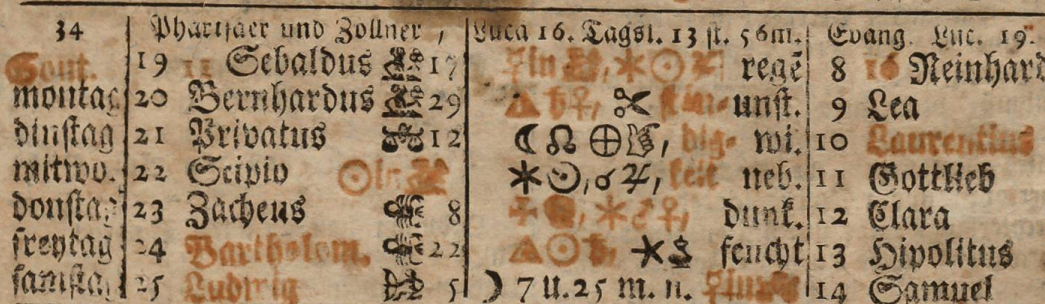 34 Pharisaer und Zollner, Luca 16. Tagsl. 13 st. 56m. Evang. Luc. 19.
Sont. 19 11 Sebaldus 17 ♀in ⚹☉ regē 8 10 Reinhard
montag 20 Bernhardus 29 △♄♀, unst. 9 Lea
dinstag 21 Privatus 12 ☾☊⊕, wi. 10 Laurentius
mitwo. 22 Scipio ☉in ⚹ ☌♃, keit neb. 11 Gottlieb
donstag 23 Zacheus 8 ⚹♂♀, dunk. 12 Clara
freytag 24 Bartholom. 22 △☉♄, ⚹ feucht 13 Hipolitus
samstag 25 Ludwig 5 ☽ 7 u. 25 m. n. 14 Samuel